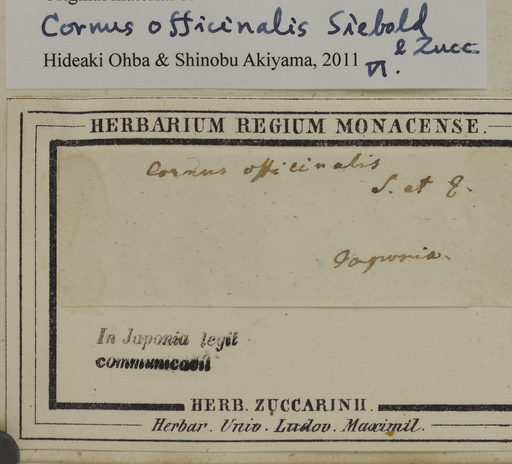 Cornus officinalis Siebold
& Zucc.
Hideaki Ohba & Shinobu Akiyama, 2011
VI.
HERBARIUM REGIUM MONACENSE.
Cornus officinalis
S. et Z.
Japonia.
In Japonia legit
communicavit
HERB. ZUCCARINII.
Herbar. Univ. Ludov. Maximil.